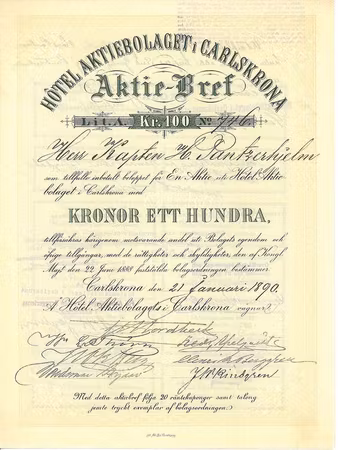 HÔTEL AKTIEBOLAGET i CARLSKRONA
Aktie-Bref
Litt A. Kr. 100 No 746.
Herr Kapten H. Pantzerhjelm
som tillfullo inbetalt beloppet för En Aktie uti Hôtel Aktie
bolaget i Carlskrona med
KRONOR ETT HUNDRA,
tillförsäkras härigenom motsvarande andel uti Bolagets egendom och
öfriga tillgångar, med de rättigheter och skyldigheter, den af Kongl.
Maj:t den 22 juni 1888 fastställda bolagsordningen bestämmer.
Carlskrona den 21 Januari 1890.
Å Hôtel Aktiebolagets i Carlskrona vägnar:
J W Lindgren
Med detta aktiebref följa 20 räntekuponger samt talong
jemte tryckt exemplar af bolagsordningen.